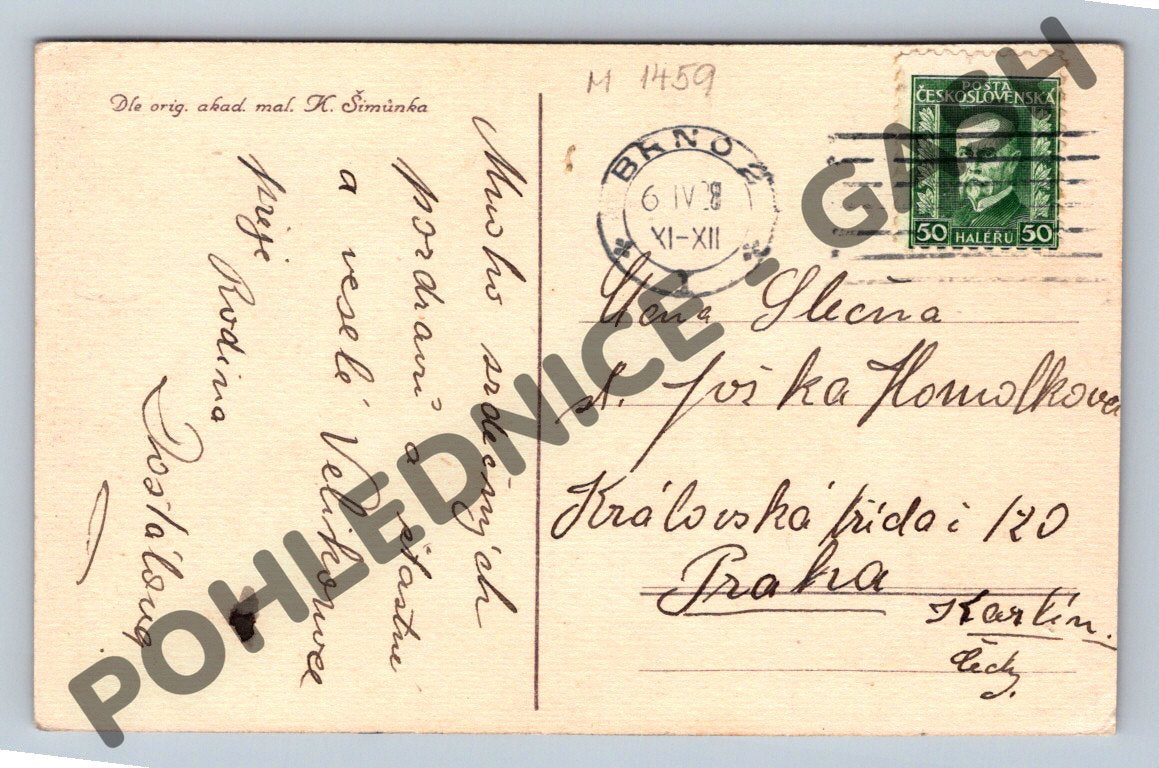 Dle orig. akad. mal. K. Šimůnka
M 1459
BRNO 2
9 IV
XI-XII
POŠTA
ČESKOSLOVENSKÁ
50 HALÉŘŮ 50
Mnoho srdečných
pozdravů a šťastné
a veselé Velikonoce
přeje
Rodina
Dostálový
Ctěná Slečna
Joška Homolková
Královská třída č 120
Praha
Karlín.
Čechy.
POHLEDNICE - GASH